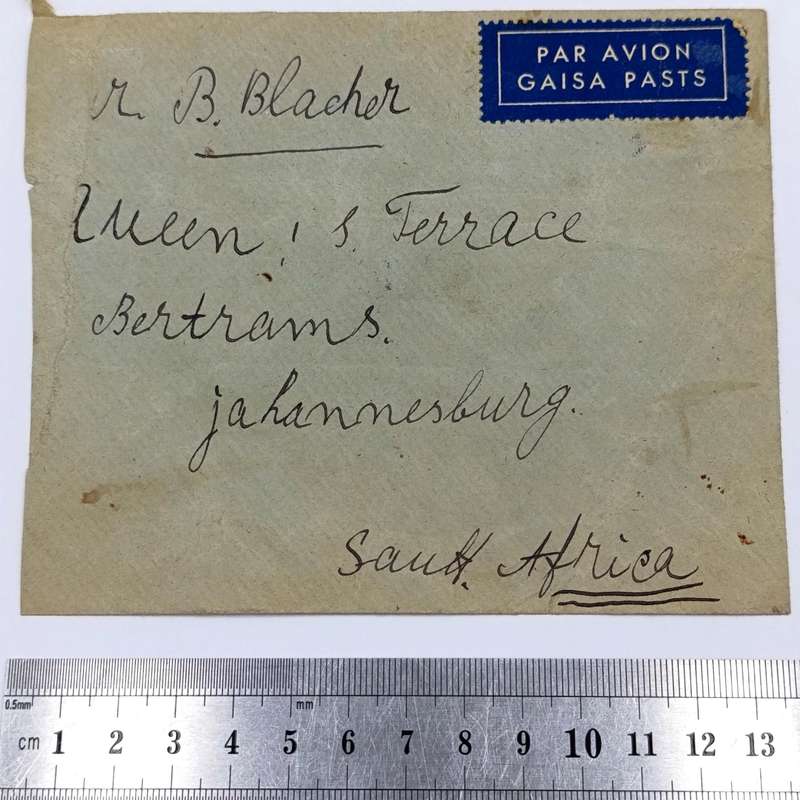 PAR AVION
GAISA PASTS
r. B. Blacher
Queen's Terrace
Bertrams.
Johannesburg.
South Africa
0.5mm mm
cm 1 2 3 4 5 6 7 8 9 10 11 12 13